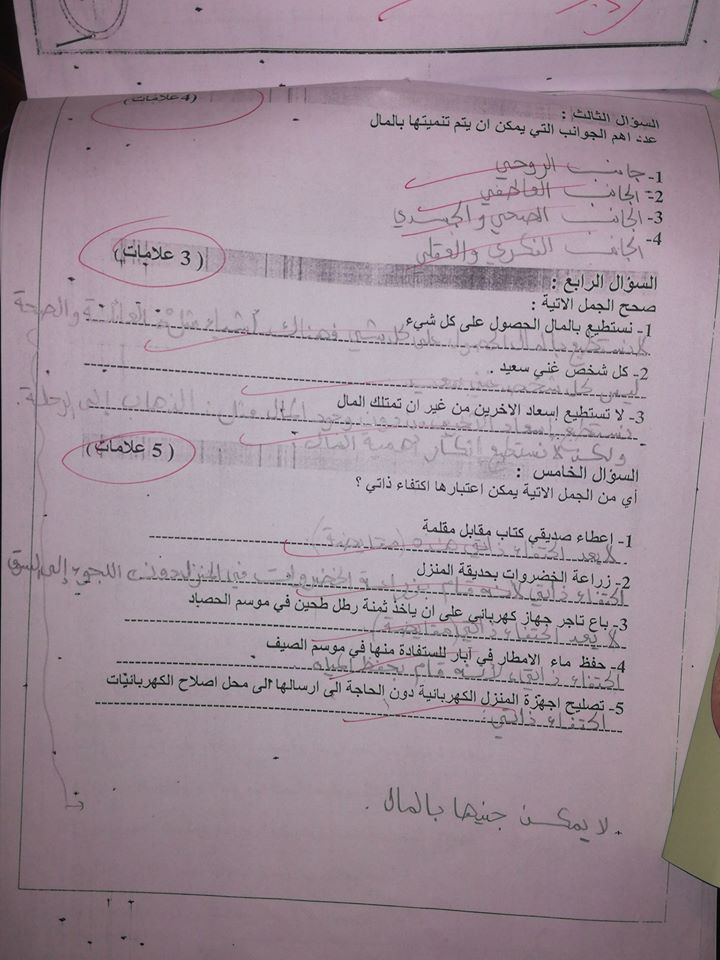 (4 علامات)
السؤال الثالث :
عدد اهم الجوانب التي يمكن ان يتم تنميتها بالمال
1- جانب الروحي
2- الجانب العاطفي
3- الجانب الصحي والجسدي
4- الجانب الفكري والعقلي
(3 علامات)
السؤال الرابع :
صحح الجمل الاتية :
1- نستطيع بالمال الحصول على كل شيء
لا نستطيع بالمال الحصول على كل شيء فهناك أشياء مثل العائلة والصحة
2- كل شخص غني سعيد .
ليس كل شخص غني سعيد
3- لا تستطيع إسعاد الاخرين من غير ان تمتلك المال
نستطيع إسعاد الآخرين بدون وجود المال مثل : الذهاب إلى الرحلة .
ولكن لا نستطيع إنكار أهمية المال .
(5 علامات)
السؤال الخامس :
أي من الجمل الاتية يمكن اعتبارها اكتفاء ذاتي ؟
1- إعطاء صديقي كتاب مقابل مقلمة
لا يعد اكتفاء ذاتي (مقايضة)
2- زراعة الخضروات بحديقة المنزل
اكتفاء ذاتي لأنه قام بزراعة الخضروات في المنزل دون اللجوء إلى السوق
3- باع تاجر جهاز كهربائي على ان ياخذ ثمنة رطل طحين في موسم الحصاد
لا يعد اكتفاء ذاتي (مقايضة)
4- حفظ ماء الامطار في آبار للستفادة منها في موسم الصيف
اكتفاء ذاتي لأنه قام بحفظ المياه
5- تصليح اجهزة المنزل الكهربائية دون الحاجة الى ارسالها الى محل اصلاح الكهربائيات
اكتفاء ذاتي .
لا يمكن جنيها بالمال .